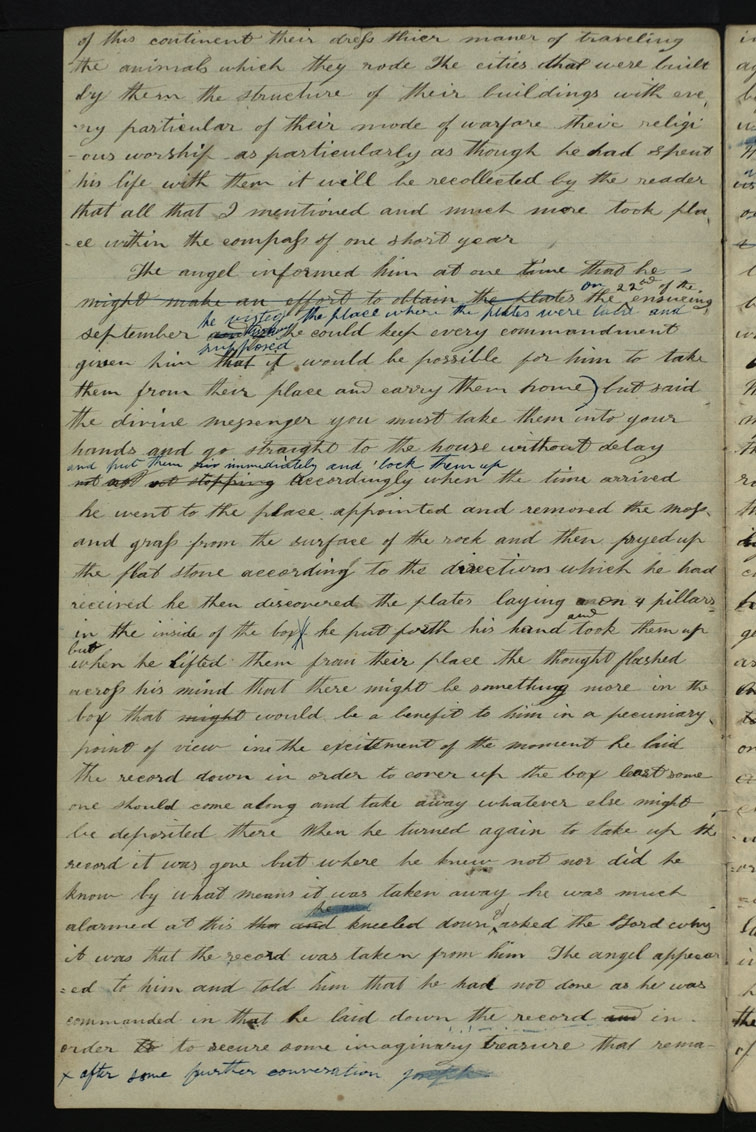 of this continent their dress thier maner of traveling
the animals which they rode The cities that were built
by them the structure of their buildings with eve,
ry particular of their mode of warfare their religi
ous worship as particularly as though he had spent
his life with them it will be recollected by the reader
that all that I mentioned and much more took pla,
-ce within the compass of one short year
The angel informed him at one time that he
might make an effort to obtain the plates on the 22nd of the ensueing
he visited the place where the plates were laid and
september he could keep every commandment
supposed
given him that it would be possible for him to take
them from their place and carry them home) but said
the divine messenger you must take them into your
hands and go straight to the house without delay
and put them in immediately and lock them up
not stopping Accordingly when the time arrived
he went to the place appointed and removed the moss
and grass from the surface of the rock and then pryed up
the flat stone according to the directions which he had
received he then discovered the plates laying on 4 pillars
in the inside of the box he put forth his hand and took them up
but
when he lifted them from their place the thought flashed
across his mind that there might be something more in the
box that might would be a benefit to him in a pecuniary
point of view in the excitement of the moment he laid
the record down in order to cover up the box least some
one should come along and take away whatever else might
be deposited there When he turned again to take up the
record it was gone but where he knew not nor did he
know by what means it was taken away he was much
he and
alarmed at this and kneeled down & asked the Lord why
it was that the record was taken from him The angel appear
=ed to him and told him that he had not done as he was
commanded in that he laid down the record and in
order to to secure some imaginary treasure that rema-
x after some further conversation Joseph